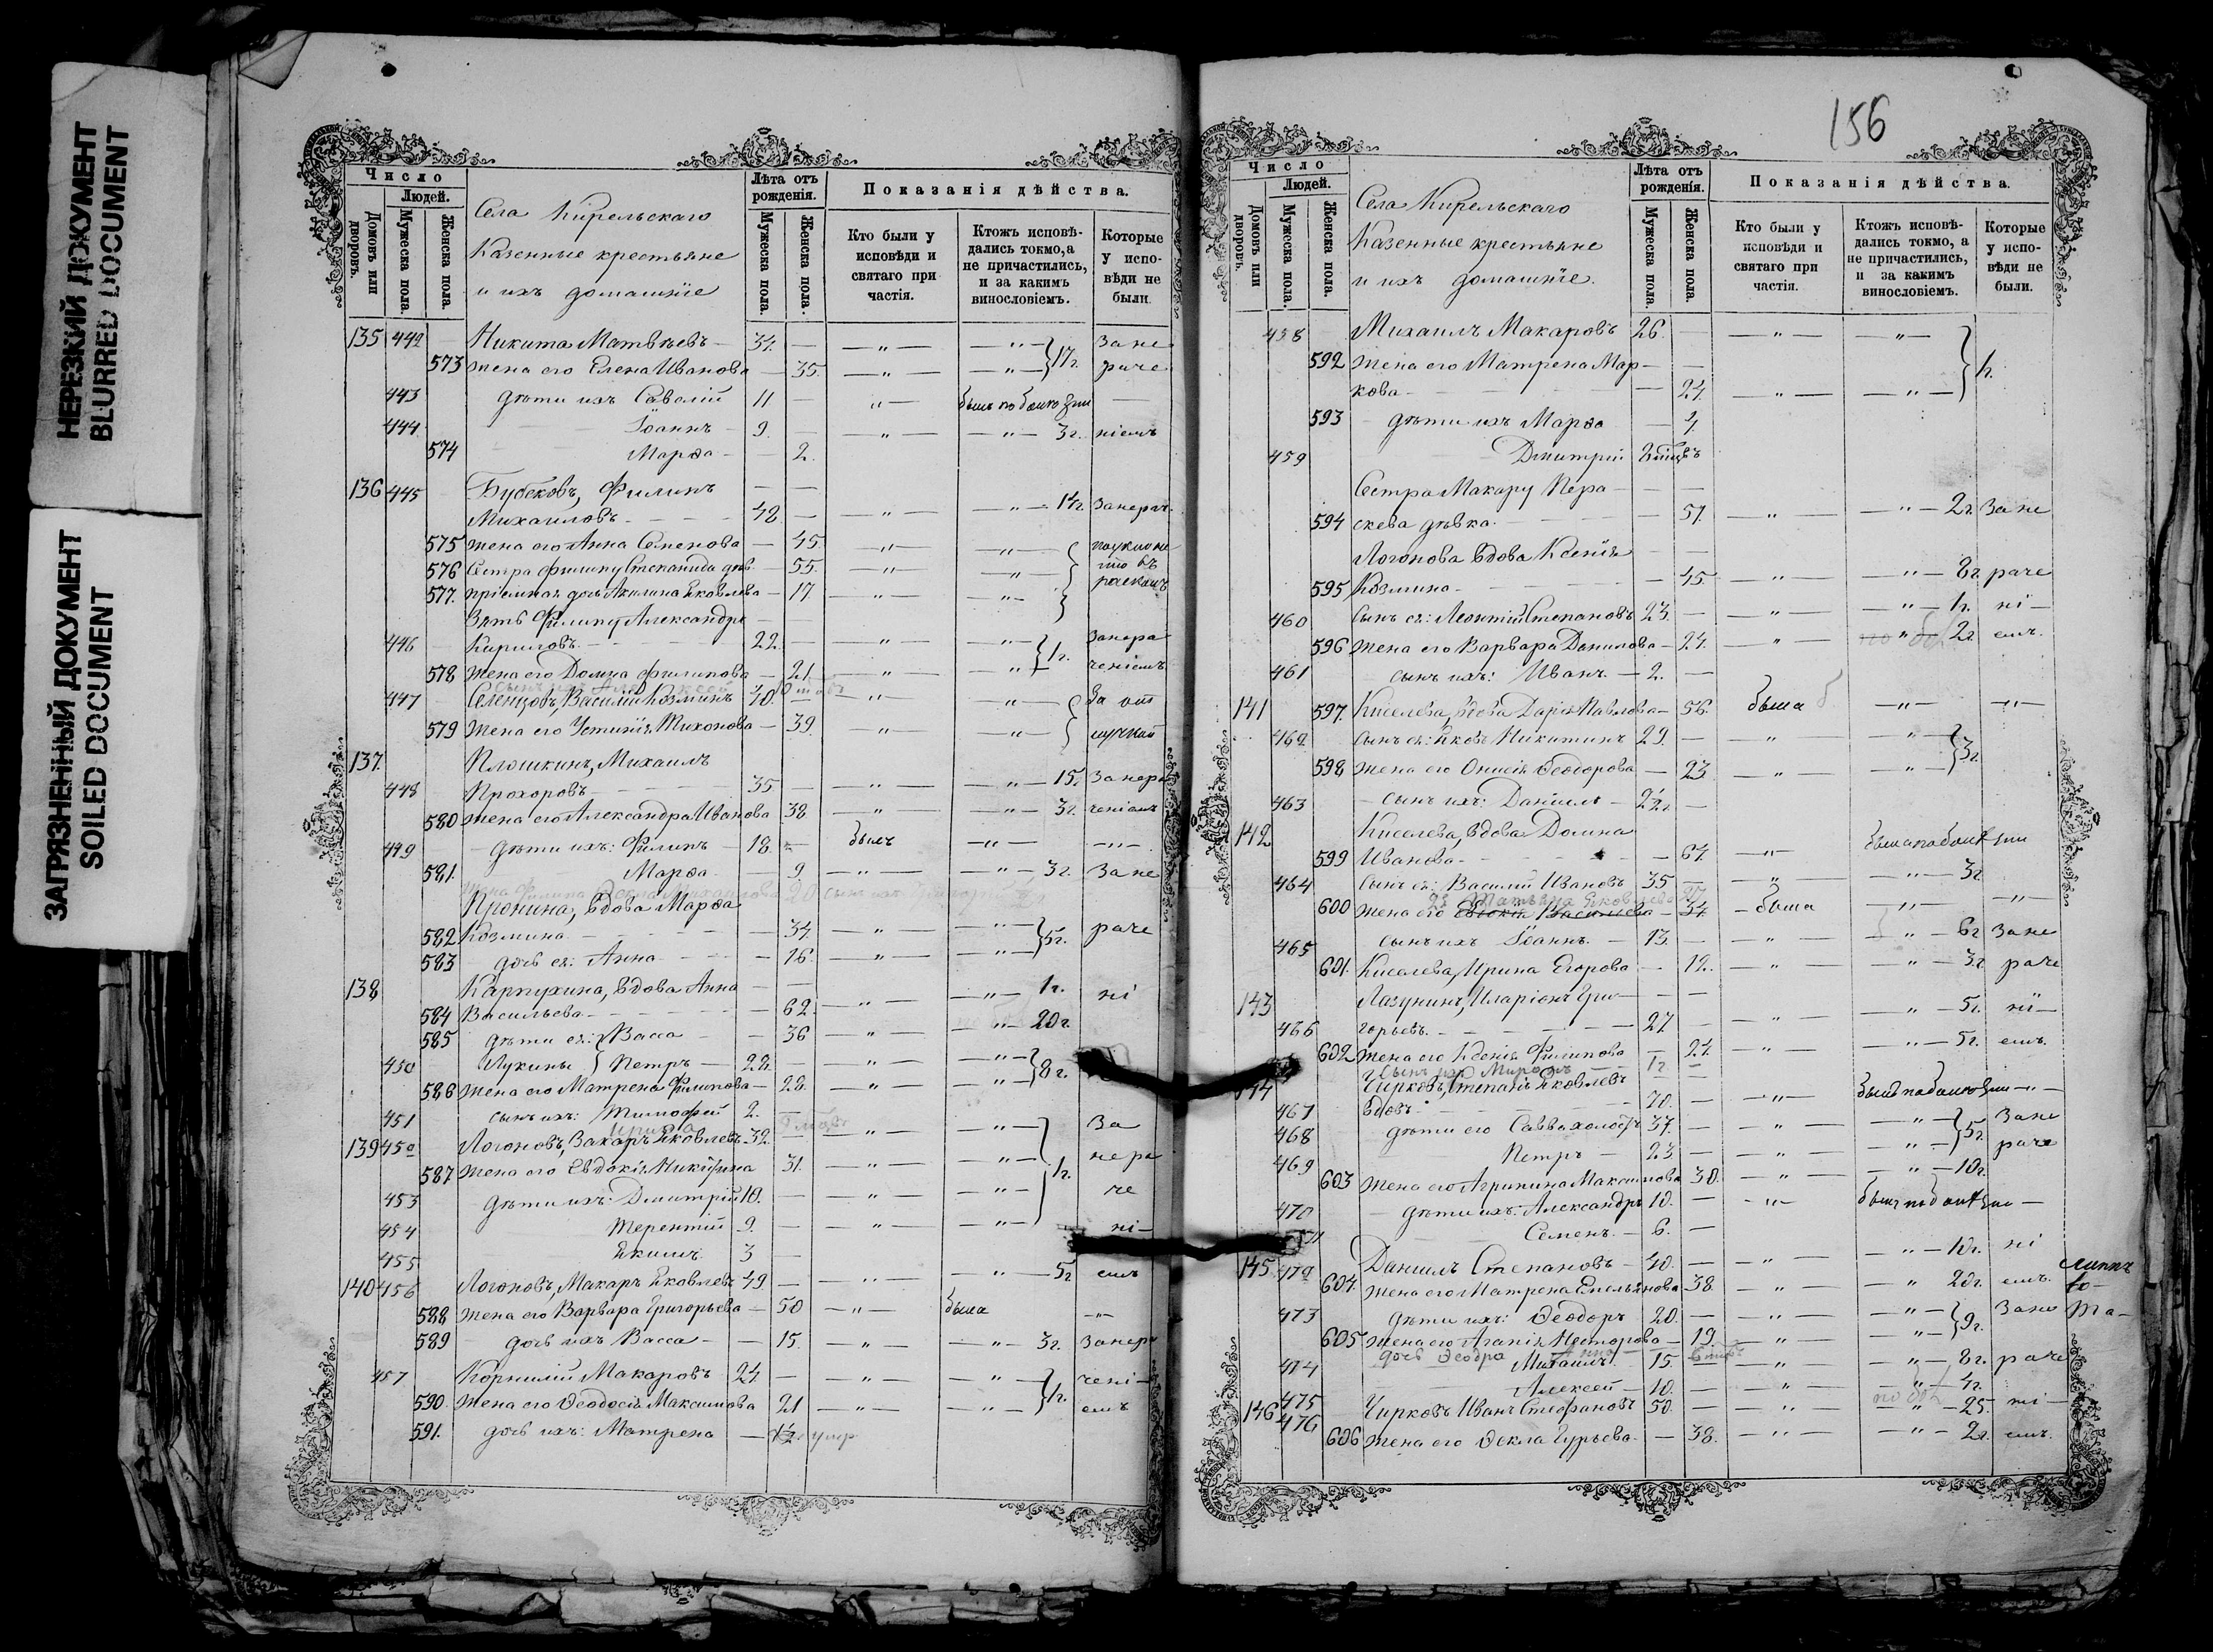 НЕРЕЗКИЙ ДОКУМЕНТ
BLURRED DOCUMENT
ЗАГРЯЗНЕННЫЙ ДОКУМЕНТ
SOILED DOCUMENT
Число
Людей.
Домовъ или дворовъ.
Мужеска пола.
Женска пола.
Села Кирельскаго
Казенные крестьяне
и ихъ домашніе
Лѣта отъ рожденія.
Мужеска пола.
Женска пола.
Показанія дѣйства.
Кто были у исповѣди и святаго при частія.
Ктожъ исповѣ-дались токмо, а не причастились, и за какимъ винословіемъ.
Которые у испо-вѣди не были.
135 442 Никита Матвѣевъ 34. — — „ — — „ — За не
573 жена его Елена Иванова — 35. — „ — — „ — } 17г. раче
443 дѣти ихъ Савелій 11 — „ —
444 Іоаннъ — 9. — „ — — „ — 3г. ніемъ
574 Марѳа — — 2.
136 445 Бубековъ, Филипъ — —
Михаиловъ — 48 — — „ — — „ — 14г. Занерач.
575 жена его Анна Семенова — 45. — „ — — „ —
576 Сестра Филипу Степанида дѣв. — 55. — „ — — „
577. пріемная дочь Акилина Яковлева — 17 — „ — — „ —
Зять Филипу Александръ —
446 Кириловъ. — 22. — „ — — „ — занера
578 жена его Домна Филипова — 21. — „ — — „ } 1г. ченіемъ
447 Селенцовъ, Василій Козминъ 40. — „ — — „ — За от
579 Жена его Устинія Тихонова — 39. — „ — — „ — лучкой
137. Плошкинъ, Михаилъ
448 Прохоровъ — 35 — — „ — — „ — 15. Занера
580 жена его Александра Иванова 38. — „ — — „ — 3г. ченіемъ
449 — дѣти ихъ: Филипъ — 18. — былъ — „ — — „ —
581. Марѳа. — — 9. — „ — — „ — 3г. За не
Пронина, вдова Марѳа
582 Козмина — — 34. — „ — — „ — раче
583 дочь ея: Анна — — 16. — „ — — „ — } 5г.
138 Карпухина, вдова Анна — —
584 Васильева — — 62. — „ — — „ — 1г. ні
585 дѣти ея: Васса — — 36 — „ — — „ — 20г.
450 Лукины { Петръ — 22. — — „ — — „ —
586 жена его Матрена Филипова — 22. — „ — — „ — } 8г.
451 сынъ ихъ: Тимофей 2. —
139 452 Логоновъ, Захаръ Яковлевъ 32. — — „ — — „ — За
587 жена его Евдокія Никитина 31. — „ — — „ — } 1г. нера
453 дѣти ихъ: Дмитрій 10. — — „ — — „ — че
454 Терентій 9. — — „ — — „ — ні —
455 Якимъ 3 —
140 456 Логоновъ, Макаръ Яковлевъ 49. — — „ — — „ — 5г. емъ
588 жена его Варвара Григорьева — 50 — „ — была — „ —
589 дочь ихъ Васса — — 15. — „ — — „ — 3г. Занера
457 Корнилій Макаровъ 24 — — „ — — „ — чені —
590. жена его Ѳеодосія Максимова 21 — „ — — „ — } 1г. емъ
591. дочь ихъ: Матрена — 1½ умр
156
Число
Людей.
Домовъ или дворовъ.
Мужеска пола.
Женска пола.
Села Кирельскаго
Казенные крестьяне
и ихъ домашніе.
Лѣта отъ рожденія.
Мужеска пола.
Женска пола.
Показанія дѣйства.
Кто были у исповѣди и святаго при частія.
Ктожъ исповѣ-дались токмо, а не причастились, и за какимъ винословіемъ.
Которые у испо-вѣди не были.
458 Михаилъ Макаровъ 26. — — „ — — „ —
592 жена его Матрена Мар — —
кова — — 24. — „ — — „ — } 1г.
593 — дѣти ихъ Марѳа — 4.
459 Дмитрій
Сестра Макару Пера — — —
594 скева дѣвка. — — 51. — „ — — „ — 2г. За не
Логонова вдова Ксенія — —
595 Козмина — — 45. — „ — — „ — 8г. раче
460 сынъ ея: Леонтій Степановъ 23. — — „ — — „ — 1г. ні —
596 жена его Варвара Данилова — 24. — „ — 2г. емъ.
461 сынъ ихъ: Иванъ. — 2. —
141 597. Киселева, вдова Дарія Павлова — 56. была — „ — — „ —
462 сынъ ея: Яковъ Никитинъ 29. — — „ — — „ —
598 жена его Онисія Ѳеодорова — 23 — „ — — „ — } 3г.
463 — сынъ ихъ: Даніилъ —
142 Киселева, вдова Домна
599 Иванова — — 64. — „ —
464 сынъ ея: Василій Ивановъ 35 — — „ — — „ — 3г
600 жена его Васильева — 34 — была — „ — — „ —
465 сынъ ихъ Іоаннъ. — 13. — „ — — „ — 6г За не
601. Киселева, Ирина Егорова — 12. — „ — — „ — 3г раче
143 Лазунинъ, Иларіонъ Гри — — —
466 горьевъ. — 27 — — „ — — „ — 5г. ні —
602 жена его Ксенія Филипова — 24. — „ — — „ — 5г. емъ.
сынъ ихъ Миронъ 1г
Чирковъ, Степанъ Яковлевъ — —
467 вдовъ — 70. — — „ —
468 дѣти его Савва холостъ 37. — — „ — — „ — За не
469 Петръ — 23 — — „ — — „ — } 5г. раче
603 жена его Агрипина Максимова 30. — „ — — „ — 10г.
470 — дѣти ихъ: Александръ 10. — — „ —
Семенъ. — 6. —
145 472 Даніилъ Степановъ — 40. — — „ — — „ — 10г. ні
604. жена его Матрена Емельянова 38. — „ — — „ 20г. емъ.
473 дѣти ихъ: Ѳеодоръ 20. — — „ — — „ — За не
605 жена его Агапія Несторова — 19. — „ — — „ — } 9г.
474 Михаилъ. 15. — „ — — „ — 8г. раче
475 Алексей — 10. — — „ — — „ — 4г.
146 476 Чирковъ Иванъ Стефановъ 50. — — „ — — „ — 25. ні —
606 жена его Ѳекла Гурьева. — 38. — „ — — „ — 2г. емъ.